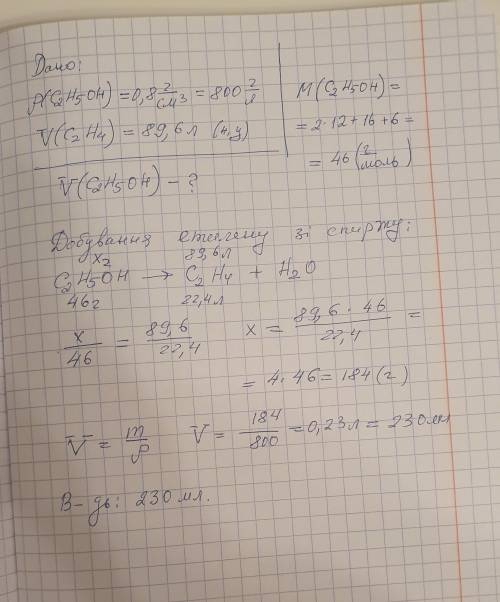 Дано:
ρ(C2H5OH) = 0,8 г/см3 = 800 г/л
V(C2H4) = 89,6 л (н,у)
V(C2H5OH) - ?
M(C2H5OH) =
= 2·12+16+6 =
= 46 (г/моль)
Добування етилену зі спирту:
x г 89,6 л
C2H5OH → C2H4 + H2O
46 г 22,4 л
x/46 = 89,6/22,4 x = 89,6·46/22,4 =
= 4·46 = 184 (г)
V = m/ρ V = 184/800 = 0,23 л = 230 мл
В-дь: 230 мл.